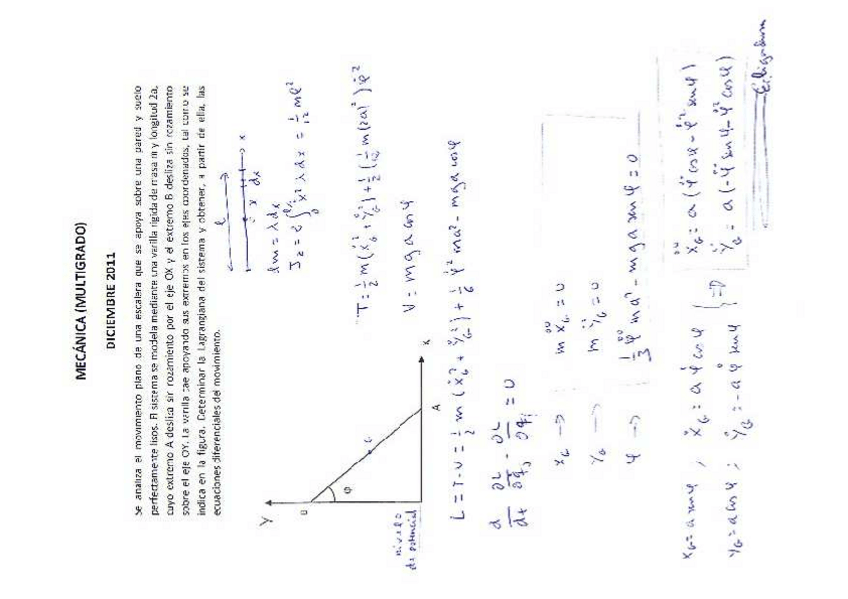 MECÁNICA (MULTIGRADO)
DICIEMBRE 2011
Se analiza el movimiento plano de una escalera que se apoya sobre una pared y suelo
perfectamente lisos. El sistema se modela mediante una varilla rígida de masa m y longitud 2a,
cuyo extremo A desliza sin rozamiento por el eje OX y el extremo B desliza sin rozamiento
sobre el eje OY. La varilla cae apoyando sus extremos en los ejes coordenados, tal como se
indica en la figura. Determinar la Lagrangiana del sistema y obtener, a partir de ella, las
ecuaciones diferenciales del movimiento.
l
x dx x
dm = λ dx
J_z = 2 ∫₀^{l/2} x² λ dx = 1/12 m l²
Y
B
φ
G
A
X
nivel 0
de potencial
T = 1/2 m (ẋ_G² + ẏ_G²) + 1/2 (1/12 m (2a)²) φ̇²
V = m g a cos φ
L = T - V = 1/2 m (ẋ_G² + ẏ_G²) + 1/6 φ̇² m a² - m g a cos φ
d/dt ∂L/∂q̇_j - ∂L/∂q_j = 0
x_G → m ẍ_G = 0
y_G → m ÿ_G = 0
φ → 1/3 φ̈ m a² - m g a sen φ = 0
x_G = a sen φ ; ẋ_G = a φ̇ cos φ } ⇒ ẍ_G = a (φ̈ cos φ - φ̇² sen φ)
y_G = a cos φ ; ẏ_G = -a φ̇ sen φ ÿ_G = a (-φ̈ sen φ - φ̇² cos φ)